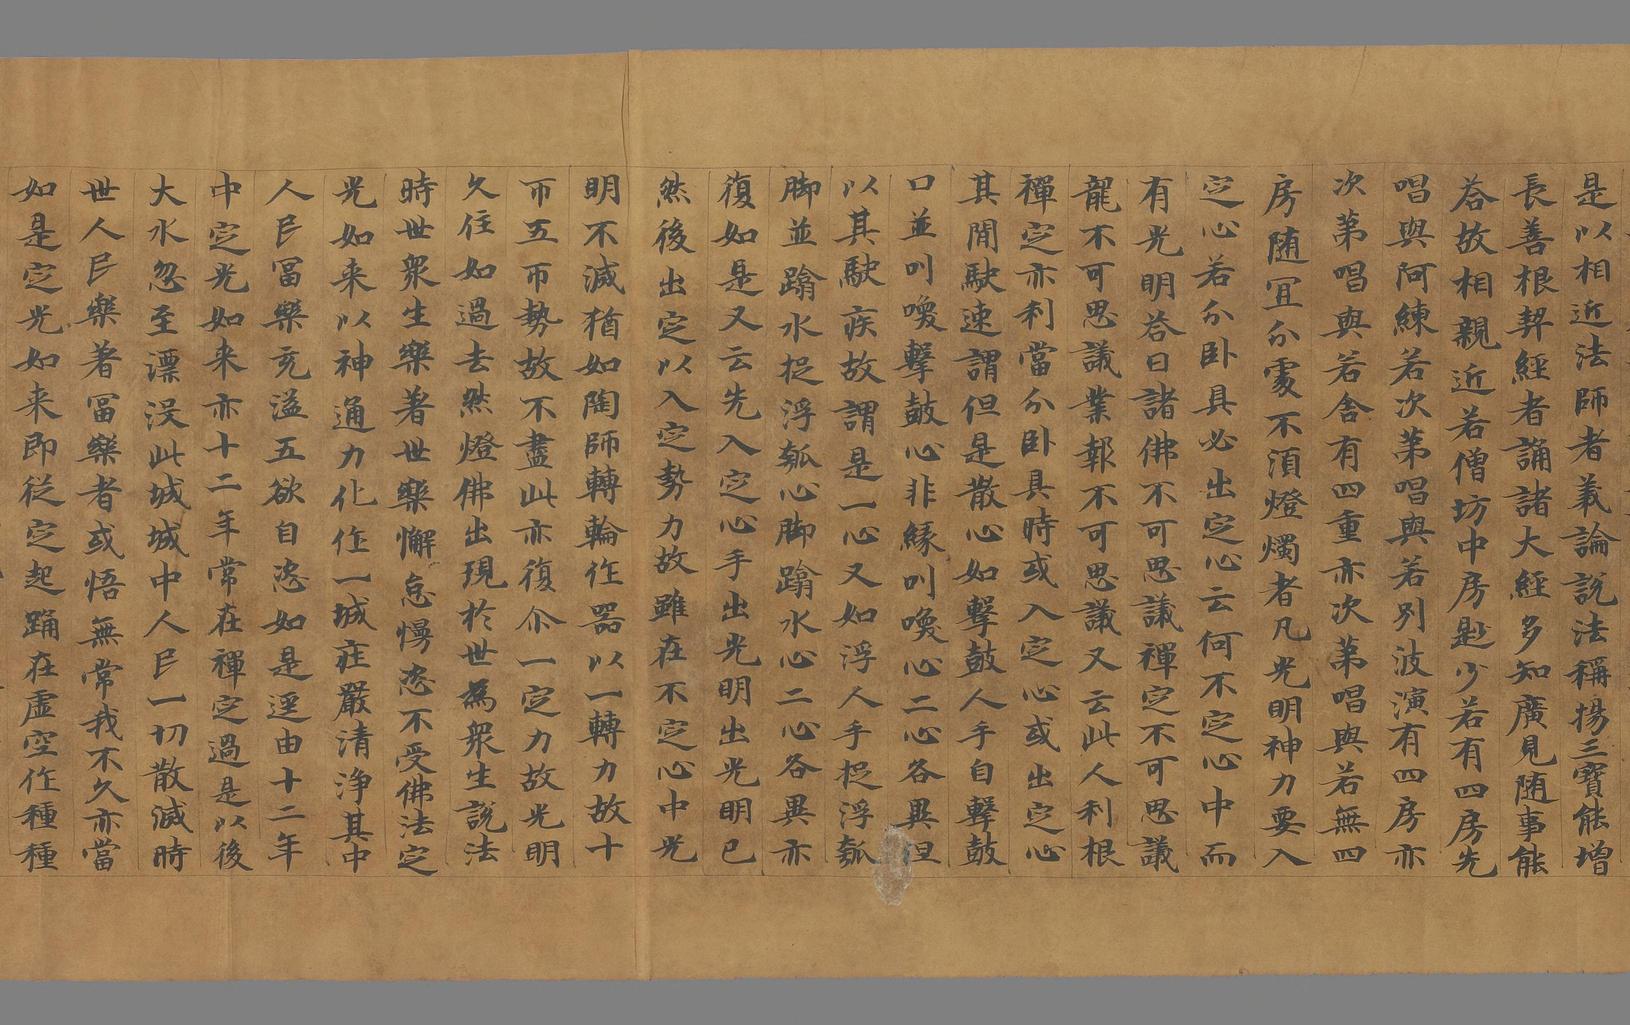 是以相近法師者義論説法稱揚三寶能增
長善根契經者誦諸大經多知廣見随事能
荅故相親近若僧坊中房尠少若有四房先
唱與阿練若次第唱與若別波演有四房亦
次第唱與若舍有四重亦次第唱與若無四
房随冝分處不湏燈燭者凡光明神力要入
定心若分卧具必出定心云何不定心中而
有光明荅曰諸佛不可思議禪定不可思議
龍不可思議業報不可思議又云此人利根
禪定亦利當分卧具時或入定心或出定心
其間駃速謂但是散心如擊鼓人手自擊鼓
口並叫喚擊鼓心非緣叫喚心二心各異但
以其駃疾故謂是一心又如浮人手捉浮瓠
脚並蹹水捉浮瓠心脚蹹水心二心各異亦
復如是又云先入定心手出光明出光明已
然後出定以入定勢力故雖在不定心中光
明不滅猶如陶師轉輪作器以一轉力故十
帀五帀勢故不盡此亦復尒一定力故光明
久住如過去然燈佛出現於世為衆生説法
時世衆生樂著世樂懈怠慢恣不受佛法定
光如来以神通力化作一城莊嚴清淨其中
人民冨樂充溢五欲自恣如是逕由十二年
中定光如来亦十二年常在禪定過是以後
大水忽至漂没此城城中人民一切散滅時
世人民樂著冨樂者或悟無常我不久亦當
如是定光如来即從定起踊在虚空作種種